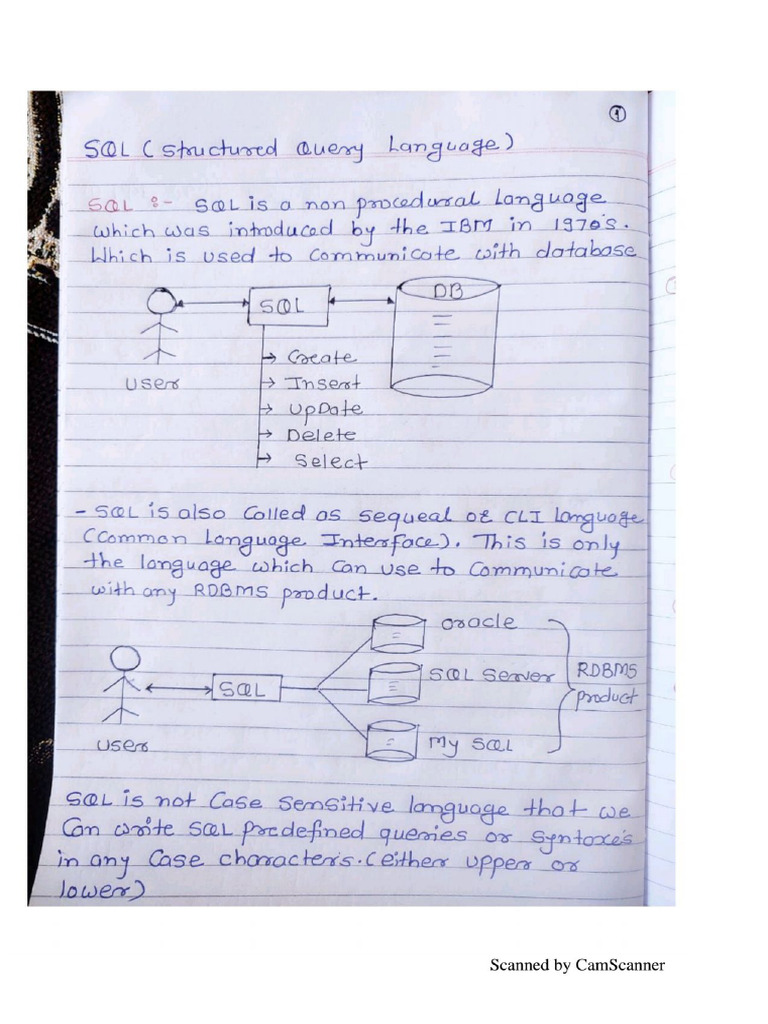 1
SQL (Structured Query Language)
SQL :- SQL is a non procedural Language
which was introduced by the IBM in 1970's.
Which is used to Communicate with database
DB
SQL
→ Create
User
→ Insert
→ UpDate
→ Delete
→ Select
- SQL is also Called as sequeal or CLI Language
(Common Language Interface). This is only
the language which Can use to Communicate
with any RDBMS product.
Oracle
SQL Server
RDBMS
product
SQL
User
My SQL
SQL is not Case Sensitive language that we
Can write SQL predefined queries or Syntaxe's
in any Case characters. (either upper or
lower)
Scanned by CamScanner